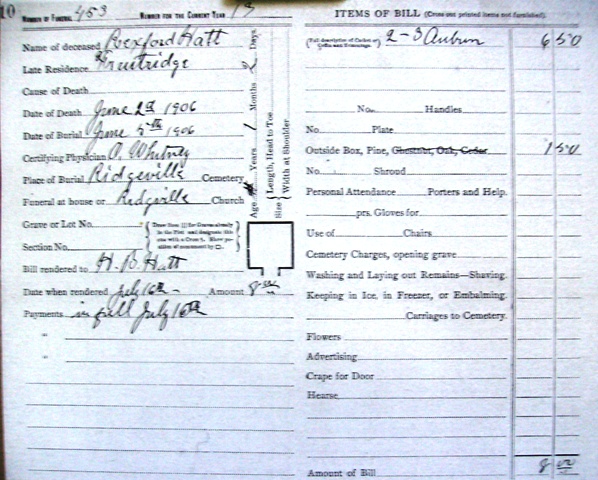 10 Number of Funeral 453 Number for the Current Year 13
Name of deceased Rexford Hatt
Late Residence Fruitridge
Cause of Death
Date of Death June 2d 1906
Date of Burial June 5th 1906
Certifying Physician O. Whitney
Place of Burial Ridgeville Cemetery
Funeral at house or Ridgville Church
Grave or Lot No.
Section No.
Bill rendered to H. B. Hatt
Date when rendered July 16th - Amount 8.00
Payments in full July 16th
"
"
Age Years 1 Months Days
Size Length, Head to Toe
Width at Shoulder
ITEMS OF BILL (Cross out printed items not furnished).
2-3 Auburn 6 50
No. Handles
No. Plate
Outside Box, Pine, Chestnut, Oak, Cedar. 1 50
No. Shroud
Personal Attendance Porters and Help.
prs. Gloves for
Use of Chairs
Cemetery Charges, opening grave
Washing and Laying out Remains—Shaving.
Keeping in Ice, in Freezer, or Embalming.
Carriages to Cemetery.
Flowers
Advertising
Crape for Door
Hearse
Amount of Bill 8 00